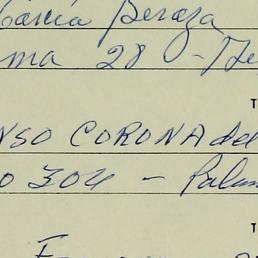 García Peraza
ma 28 -
T
NSO CORONA del
O 304 - Palam
T